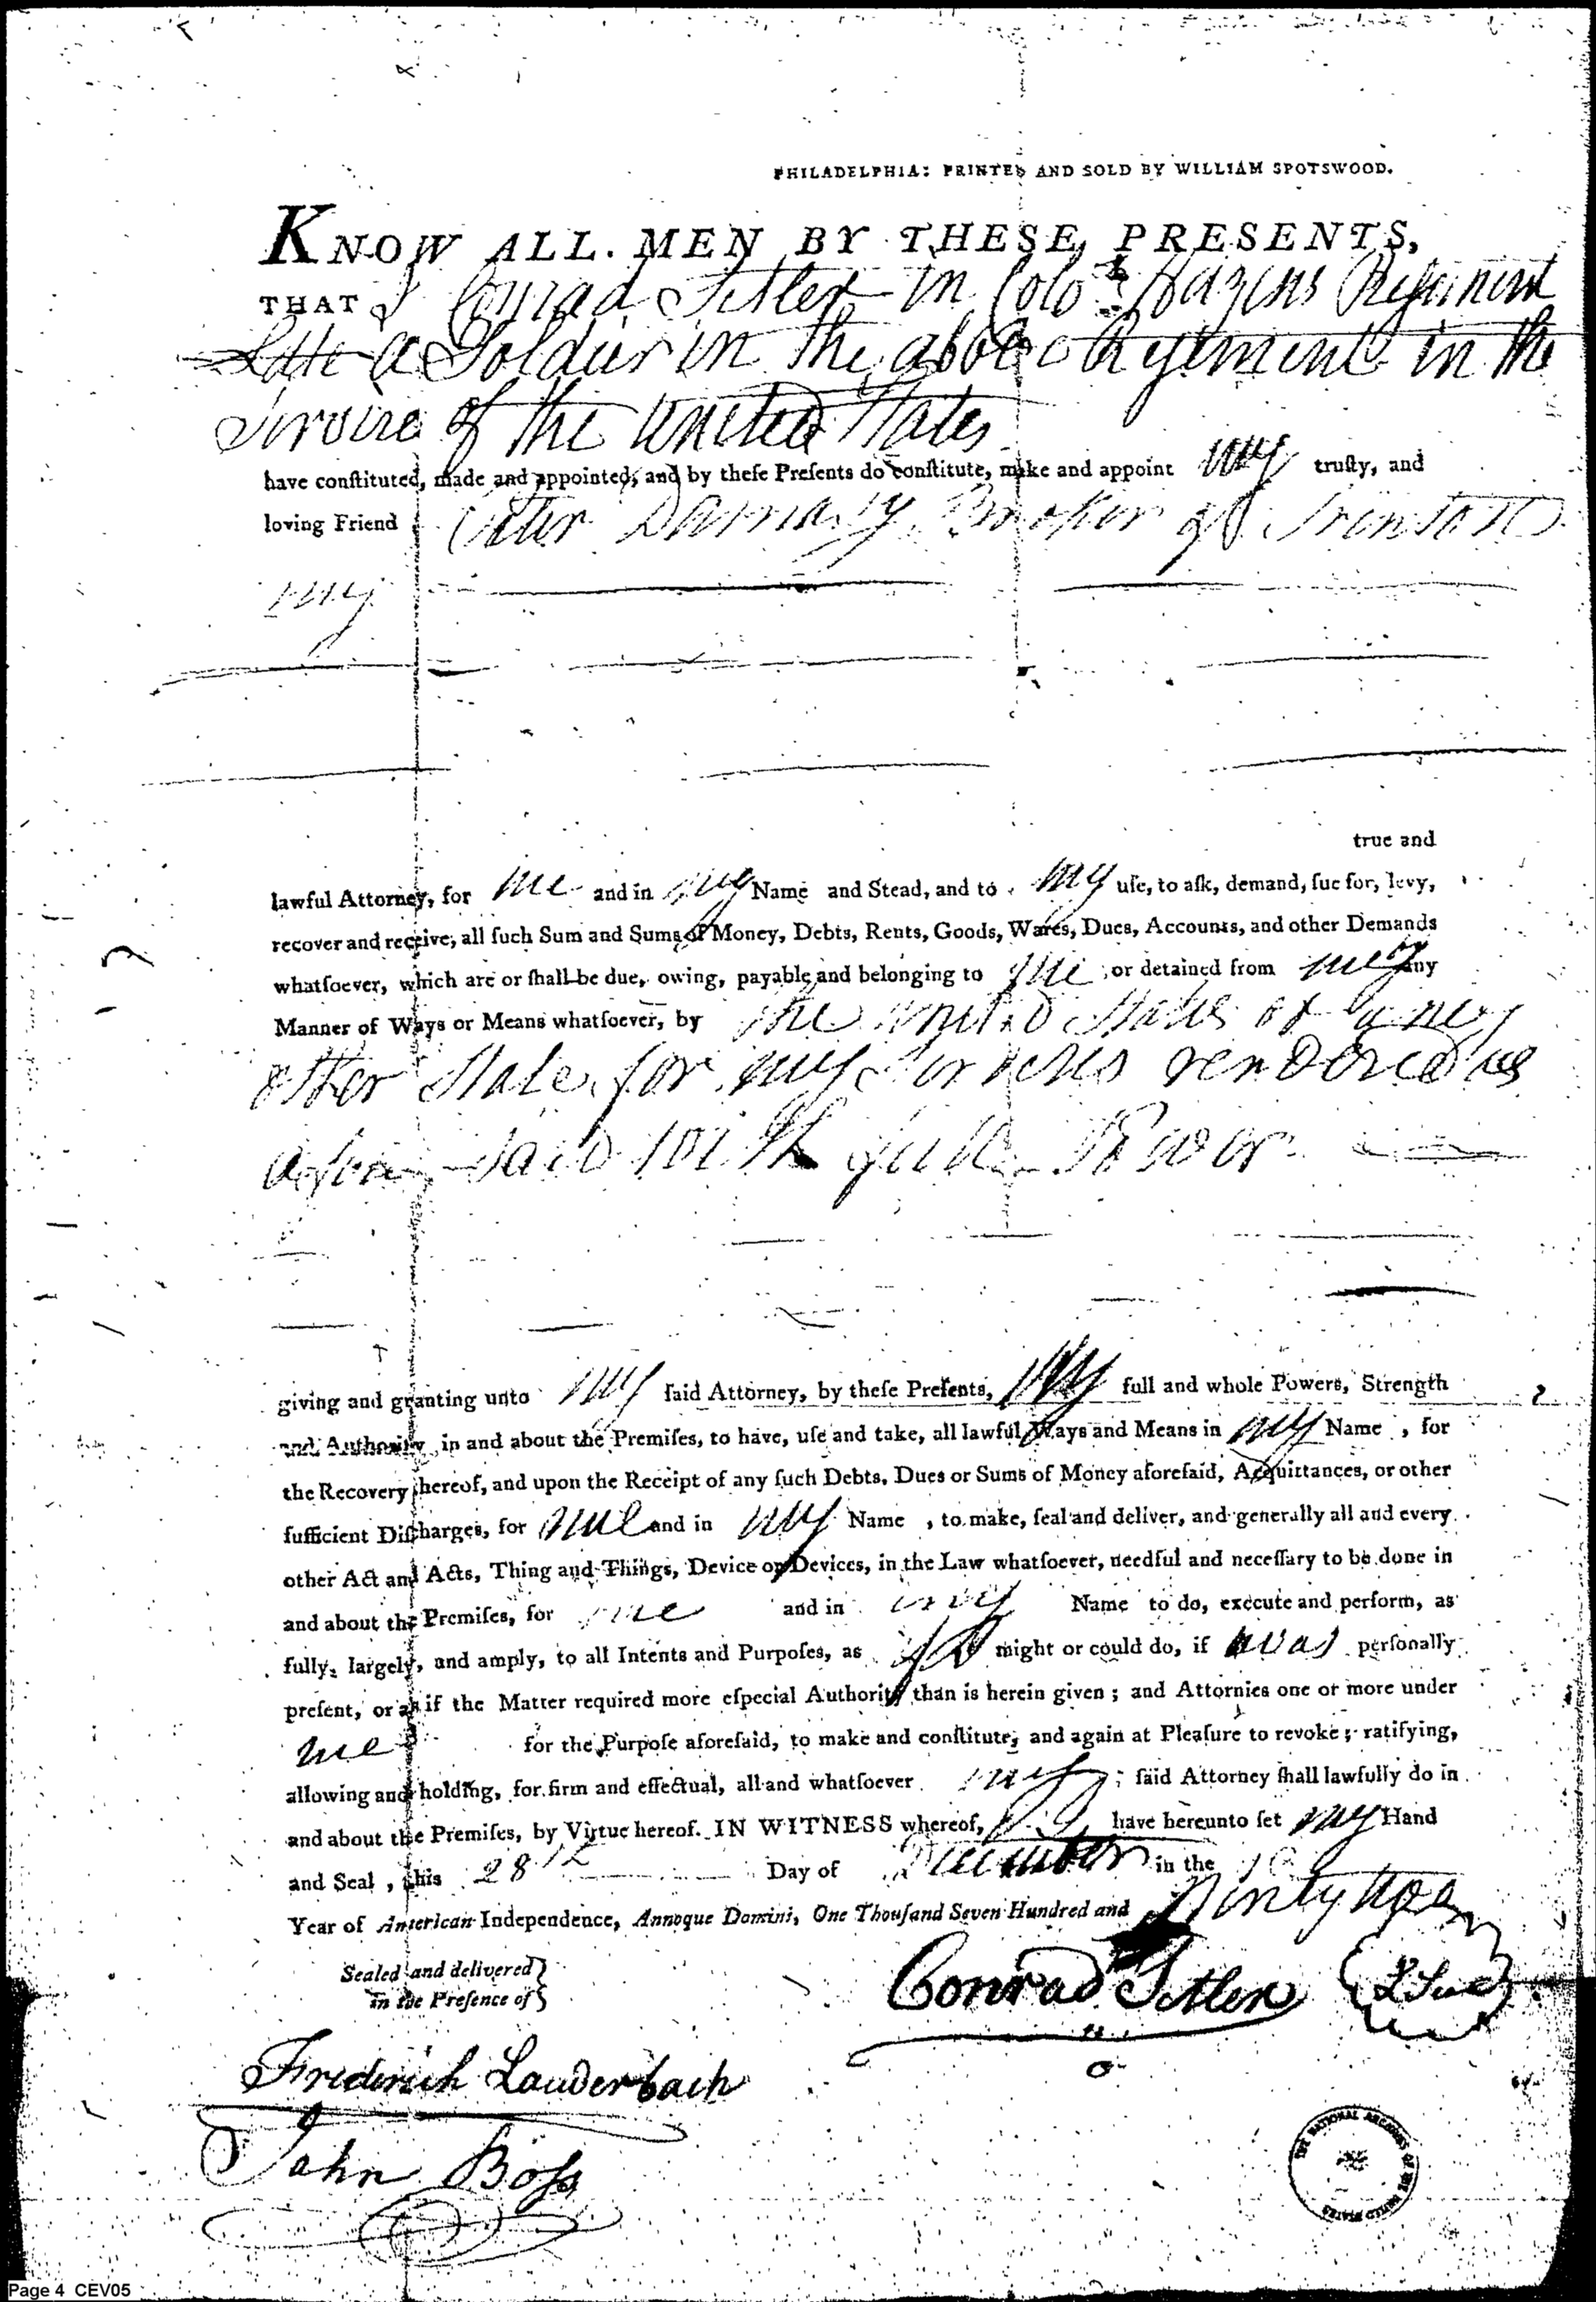 PHILADELPHIA: PRINTED AND SOLD BY WILLIAM SPOTSWOOD.
KNOW ALL MEN BY THESE PRESENTS,
THAT I Conrad Sitler in Colo Hazens Regiment
Late a Soldier in the above Regiment in the
Service of the United States
have conſtituted, made and appointed, and by theſe Preſents do conſtitute, make and appoint my truſty, and
loving Friend Peter Broker of
my
true and
lawful Attorney, for me and in my Name and Stead, and to my uſe, to aſk, demand, ſue for, levy,
recover and receive, all ſuch Sum and Sums of Money, Debts, Rents, Goods, Wares, Dues, Accounts, and other Demands
whatſoever, which are or ſhall be due, owing, payable and belonging to me or detained from me any
Manner of Ways or Means whatſoever, by the United States or
other State for my rendered as
said with full Power
giving and granting unto my ſaid Attorney, by theſe Preſents, my full and whole Powers, Strength
and Authority in and about the Premiſes, to have, uſe and take, all lawful Ways and Means in my Name , for
the Recovery hereof, and upon the Receipt of any ſuch Debts, Dues or Sums of Money aforeſaid, Acquittances, or other
ſufficient Diſcharges, for me and in my Name , to make, ſeal and deliver, and generally all and every
other Act and Acts, Thing and Things, Device or Devices, in the Law whatſoever, needful and neceſſary to be done in
and about the Premiſes, for me and in my Name to do, execute and perform, as
fully, largely, and amply, to all Intents and Purpoſes, as I might or could do, if was perſonally
preſent, or as if the Matter required more eſpecial Authority than is herein given ; and Attornies one or more under
me for the Purpoſe aforeſaid, to make and conſtitute, and again at Pleaſure to revoke ; ratifying,
allowing and holding, for firm and effectual, all and whatſoever my ſaid Attorney ſhall lawfully do in
and about the Premiſes, by Virtue hereof. IN WITNESS whereof, I have hereunto ſet my Hand
and Seal , this 28th Day of December in the
Year of American Independence, Annoque Domini, One Thouſand Seven Hundred and
Conrad Sitler
Sealed and delivered
in the Preſence of
Frederick Lauderbach
John Boſs
THE NATIONAL ARCHIVES OF THE UNITED STATES
Page 4 CEV05